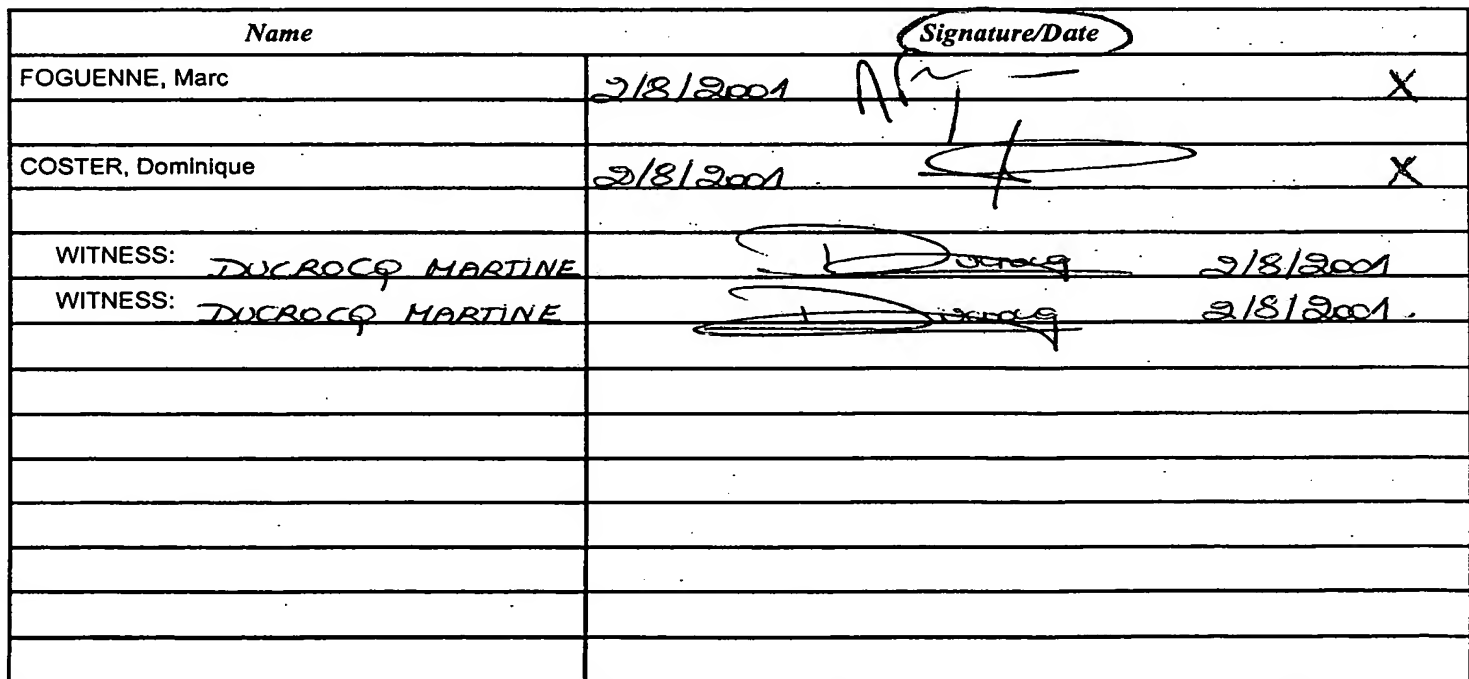 Name Signature/Date
FOGUENNE, Marc 2/8/2001 X
COSTER, Dominique 2/8/2001 X
WITNESS: DUCROCQ MARTINE Ducrocq 2/8/2001
WITNESS: DUCROCQ MARTINE Ducrocq 2/8/2001.